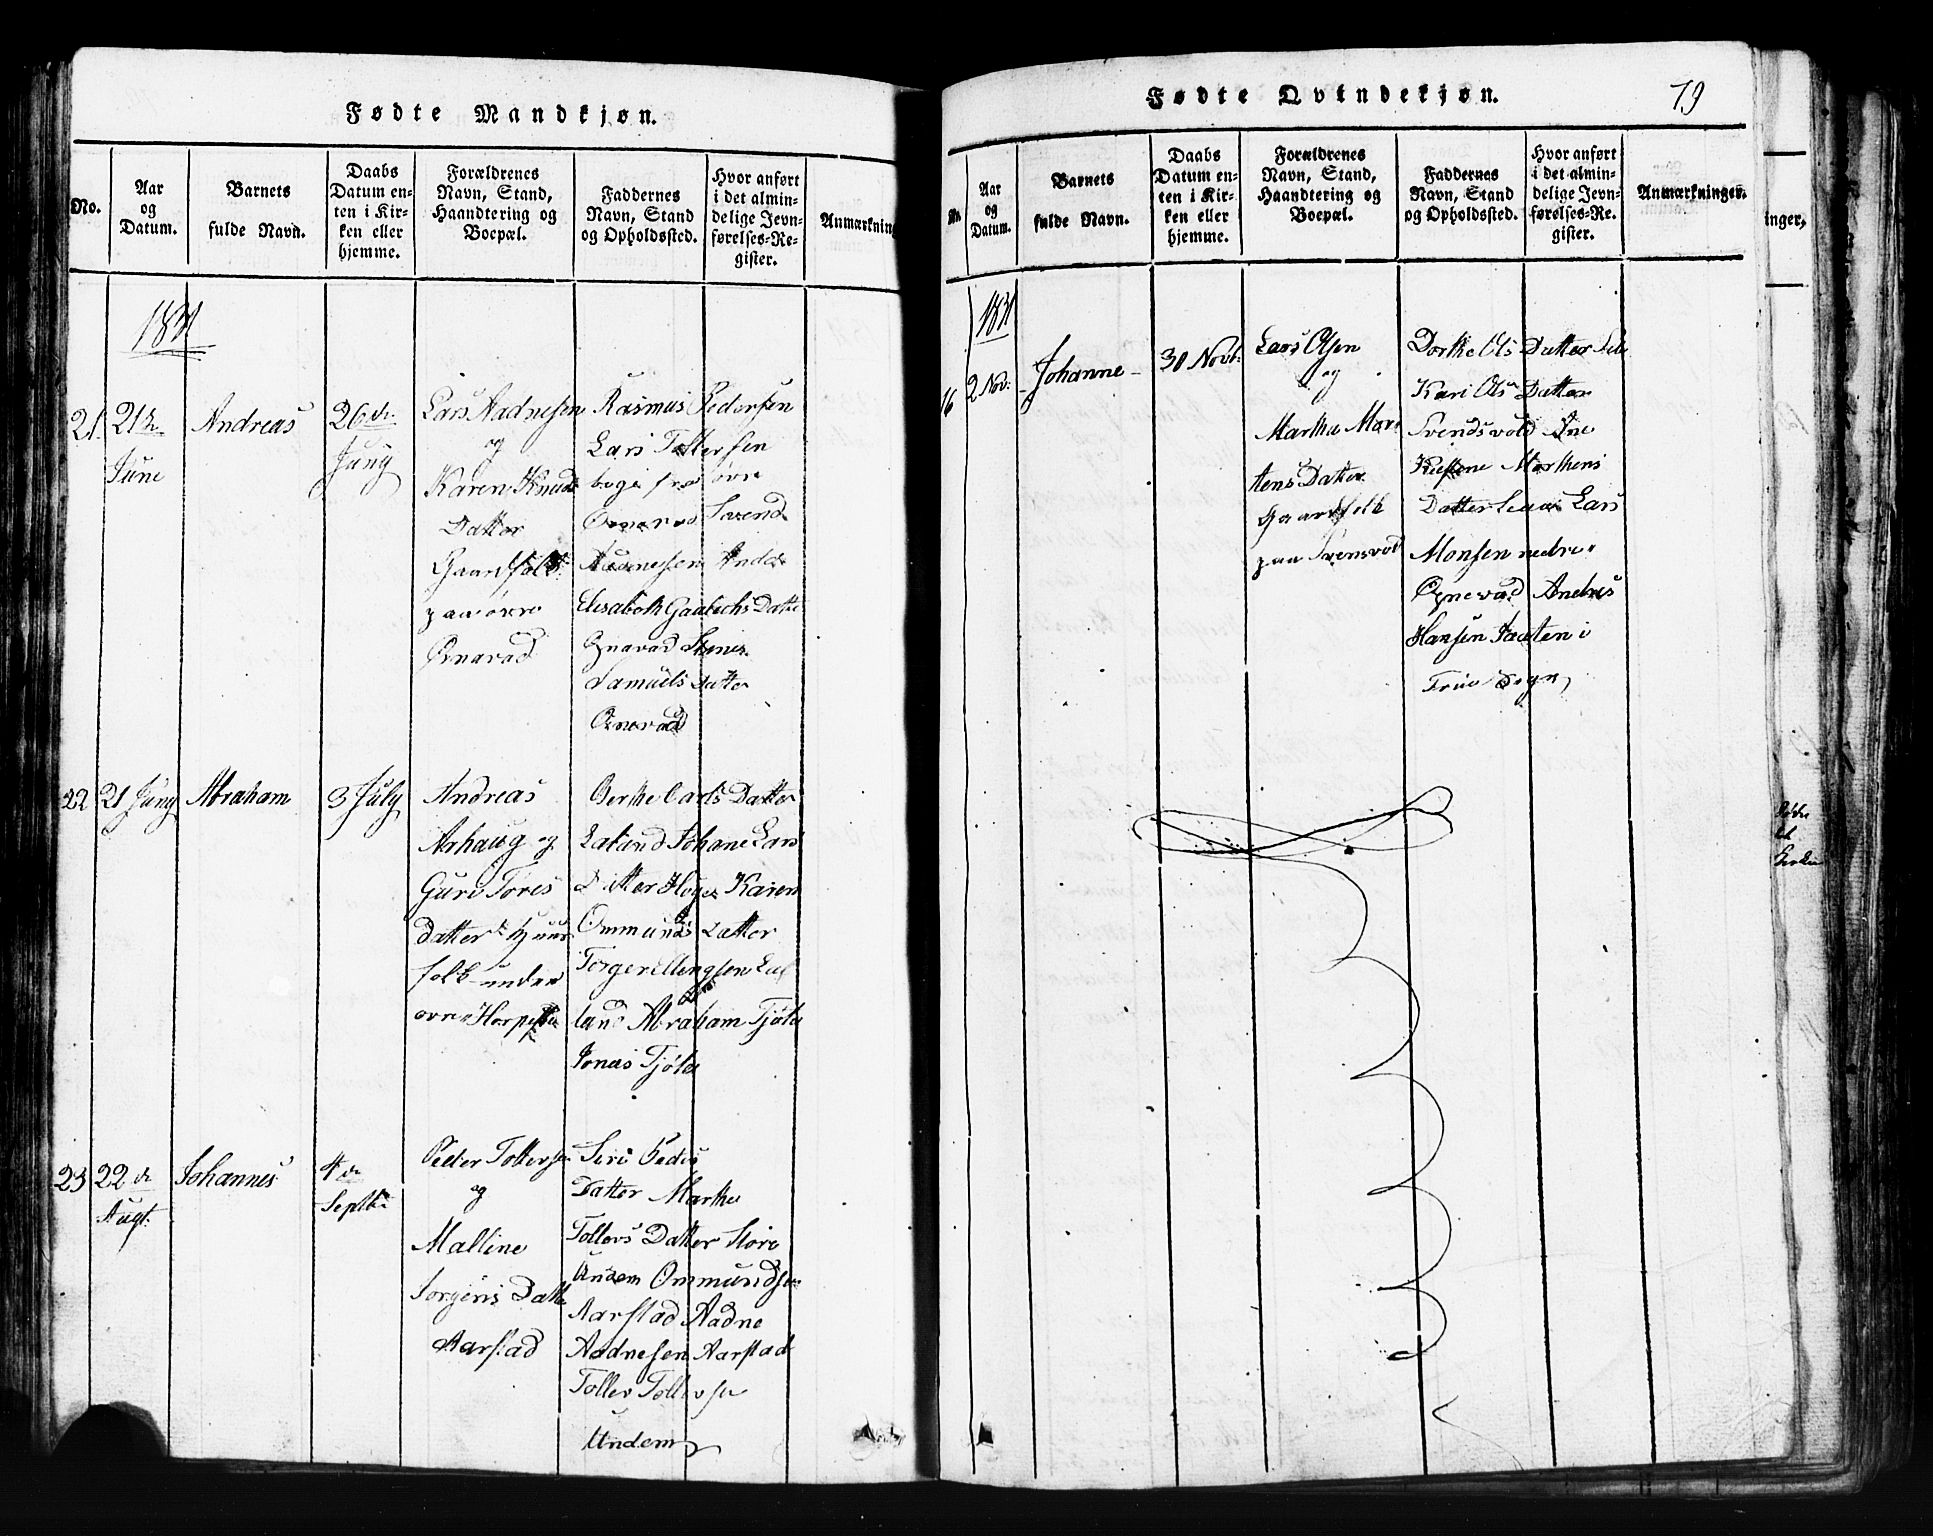 Fødte Mandkjøn.
No.
Aar
og
Datum.
Barnets
fulde Navn.
Daabs
Datum en-
ten i Kir-
ken eller
hjemme.
Forældrenes
Navn, Stand,
Haandtering og
Boepæl.
Faddernes
Navn, Stand
og Opholdssted.
Hvor anført
i det almin-
delige Jevn-
førelses-Re-
gister.
Anmærkning
1831
21.
21de
June
Andreas
26de
Juny
Lars Aadnesen
og
Karen Knuds
Datter
Gaardfolk
paa øvre
Ognavad
Rasmus Pedersen
Lars Tollersen
bege fra øvre
Svend
Aadnesen
Elisabeth Datte
Ognavad
Samuels Datter
Ognavad
22
21 Juny
Abraham
3 July
Andreas
Arhaug og
Guri Tores
datter
folk under
øvre
Berthe Carls Datter
Laland Johane Lars
Datter Karen
Ommunds Datter
Torger Ellingsen Lal
land Abraham Tjøte
Jonas Tjøte
23
22de
Augt.
Johannes
4de
Septbr
Peder Tollefsen
og
Malline
Sørgens Datte
Aarstad
Siri Peders
Datter Marthe
Tollevs Datter
Undem Ommundsen
Aarstad Aadne
Aadnesen Aarstad
Tollev Tollevsen
Undem
Fødte Qvindekjøn.
79
Nr.
Aar
og
Datum.
Barnets
fulde Navn.
Daabs
Datum en-
ten i Kir-
ken eller
hjemme.
Forældrenes
Navn, Stand,
Haandtering og
Boepæl.
Faddernes
Navn, Stand
og Opholdssted.
Hvor anført
i det almin-
delige Jevn-
førelses-Re-
gister.
Anmærkninger.
1831
16
2 Nov:
Johanne
30 Novb:
Lars Olsen
og
Martha Mor-
tens Datter
Gaardfolk
paa Svensvold
Dorthe Ols Datter
Kari Ols Datter
Svendsvold Ane
Kistene Morthens
Datter Lars
Monsen nedre
Ognevad Andres
Hansen i
Sogn
inger,